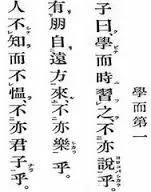 學而第一
子曰、學而時習之、不亦說乎。
有朋自遠方來、不亦樂乎。
人不知而不慍、不亦君子乎。